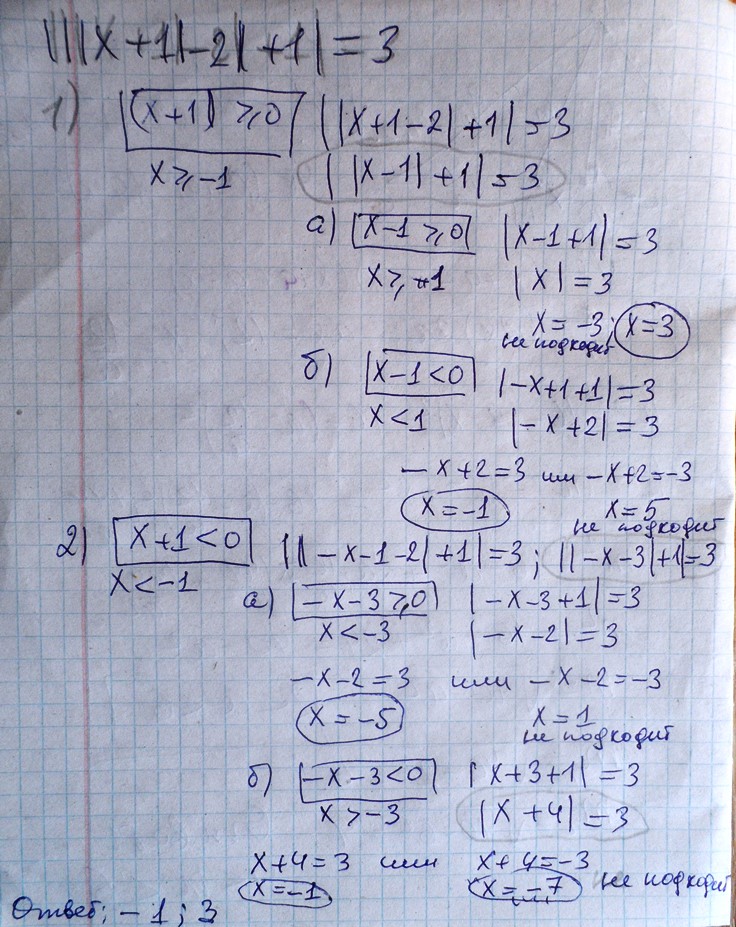 ||||x+1|-2|+1|=3
1) |(x+1) ≥0 ||x+1-2|+1|=3
x≥-1 ||x-1|+1|=3
а) x-1≥0 |x-1+1|=3
x≥1 |x|=3
x=-3; x=3
не подходит
б) x-1<0 |-x+1+1|=3
x<1 |-x+2|=3
-x+2=3 или -x+2=-3
x=-1 x=5
не подходит
2) x+1<0 ||-x-1-2|+1|=3; ||-x-3|+1|=3
x<-1
а) -x-3≥0 |-x-3+1|=3
x<-3 |-x-2|=3
-x-2=3 или -x-2=-3
x=-5 x=1
не подходит
б) -x-3<0 |x+3+1|=3
x>-3 |x+4|=3
x+4=3 или x+4=-3
x=-1 x=-7 не подходит
Ответ: -1; 3